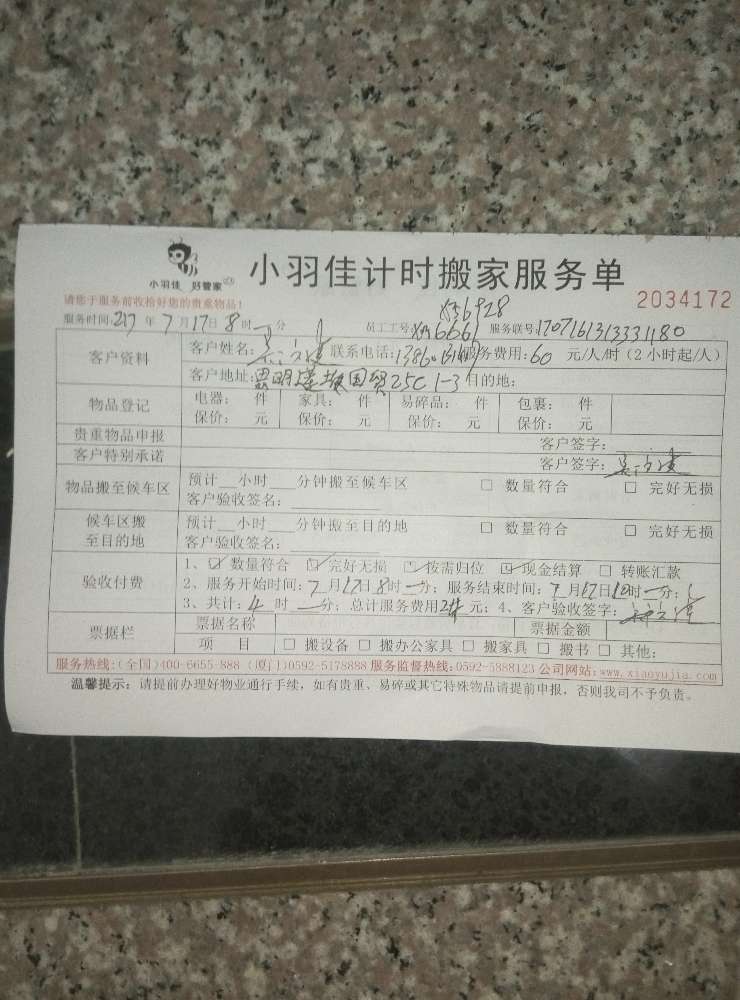 小羽佳 好管家
小羽佳计时搬家服务单
2034172
请您于服务前收拾好您的贵重物品!
服务时间:217年7月17日8时一分 员工工号: 服务联号:
X56928
6661
客户资料 客户姓名: 联系电话: 服务费用:60 元/人/时(2小时起/人)
客户地址:思明 国贸25C 1-3 目的地:
物品登记 电器: 件 家具: 件 易碎品: 件 包裹: 件
保价: 元 保价: 元 保价: 元 保价: 元
贵重物品申报 客户签字:
客户特别承诺 客户签字:
物品搬至候车区 预计__小时__分钟搬至候车区 □ 数量符合 □ 完好无损
客户验收签名:
候车区搬至目的地 预计__小时__分钟搬至目的地 □ 数量符合 □ 完好无损
客户验收签名:
验收付费 1、☑ 数量符合 ☑ 完好无损 ☑ 按需归位 ☑ 现金结算 □ 转账汇款
2、服务开始时间:7月17日8时一分; 服务结束时间:7月17日10时一分;
3、共计:4时一分; 总计服务费用 元; 4、客户验收签字:
票据栏 票据名称 票据金额
项 目 □ 搬设备 □ 搬办公家具 □ 搬家具 □ 搬书 □ 其他:
服务热线:(全国)400-6655-888 (厦门)0592-5178888 服务监督热线:0592-5888123 公司网站:www.xiaoyujia.com
温馨提示: 请提前办理好物业通行手续, 如有贵重、易碎或其它特殊物品请提前申报, 否则我司不予负责。